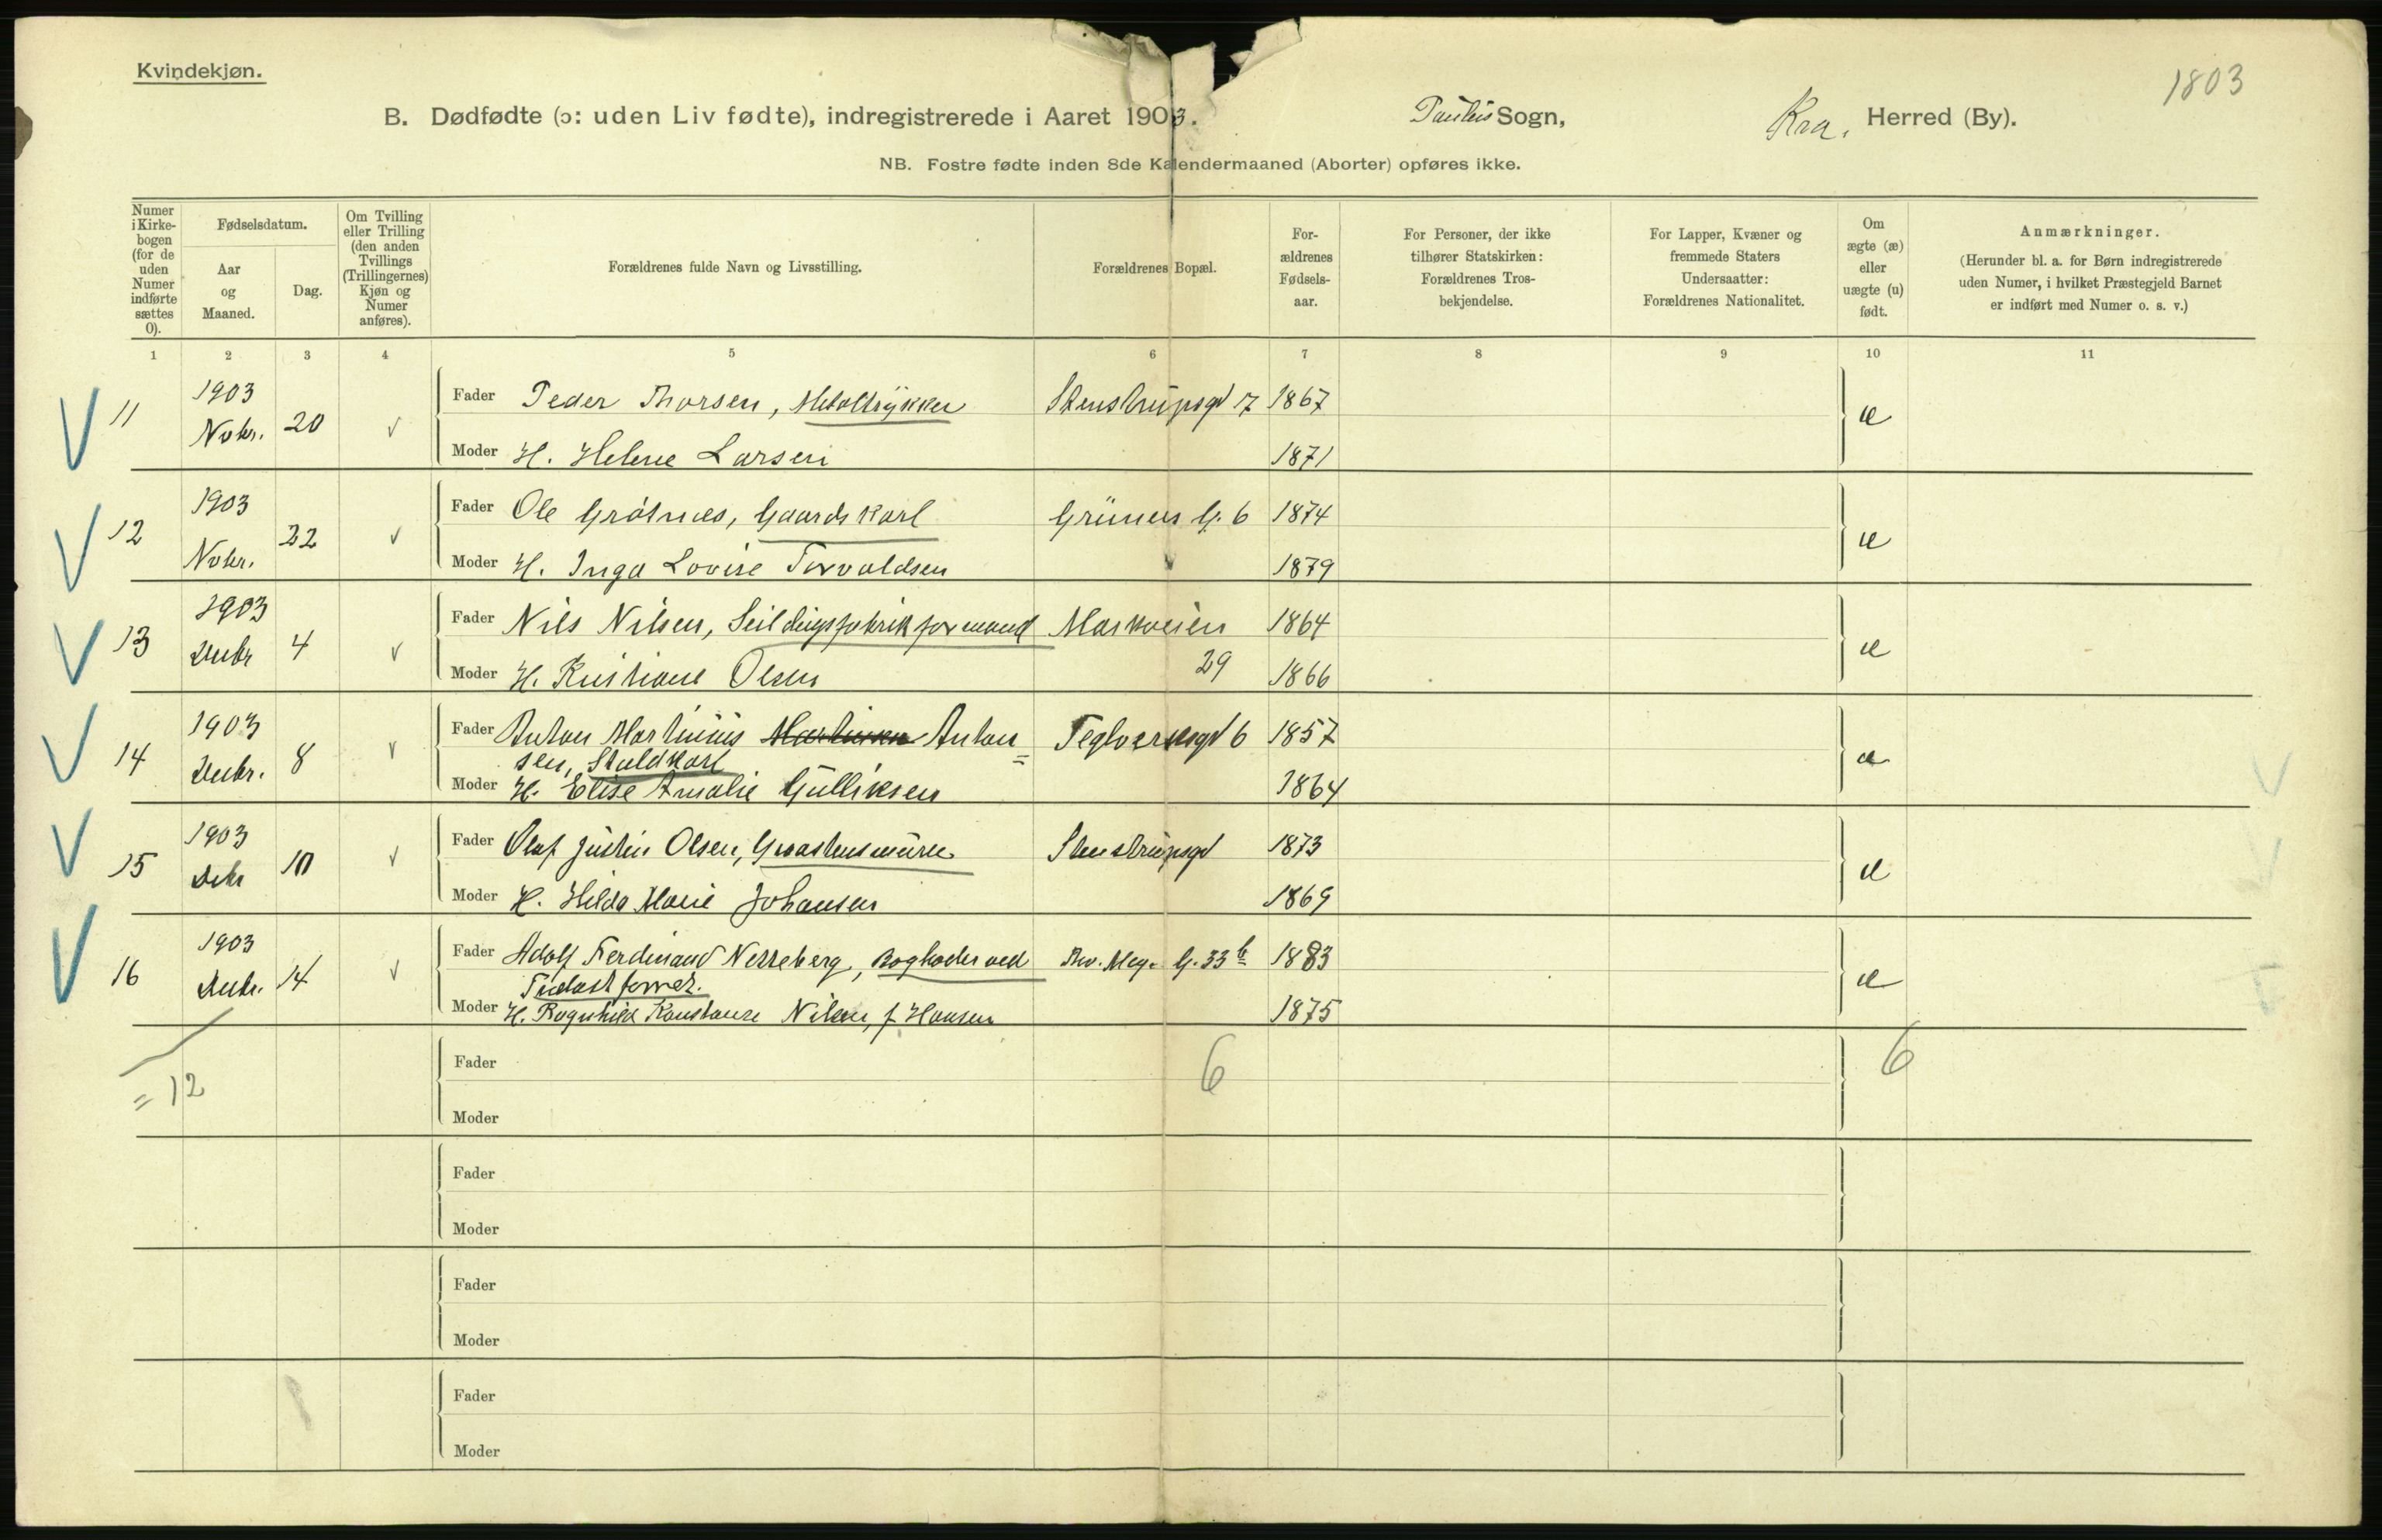 Kvindekjøn.
1803
B. Dødfødte (ɔ: uden Liv fødte), indregistrerede i Aaret 1903. Paulus Sogn, Kra. Herred (By).
NB. Fostre fødte inden 8de Kalendermaaned (Aborter) opføres ikke.
Numer i Kirkebogen (for de uden Numer indførte sættes 0).
Fødselsdatum.
Aar og Maaned.
Dag.
Om Tvilling eller Trilling (den anden Tvillings (Trillingernes) Kjøn og Numer anføres).
Forældrenes fulde Navn og Livsstilling.
Forældrenes Bopæl.
For-ældrenes Fødsels-aar.
For Personer, der ikke tilhører Statskirken: Forældrenes Tros-bekjendelse.
For Lapper, Kvæner og fremmede Staters Undersaatter: Forældrenes Nationalitet.
Om ægte (æ) eller uægte (u) født.
Anmærkninger.
(Herunder bl. a. for Børn indregistrerede uden Numer, i hvilket Præstegjeld Barnet er indført med Numer o. s. v.)
1 2 3 4 5 6 7 8 9 10 11
V 11 1903 Novbr. 20 √ Fader Peder Thorsen, Metaltrykker Stenstrupsgd 17 1867 æ
Moder H. Helene Larsen 1871
V 12 1903 Novbr. 22 √ Fader Ole Grötnæs, Gaardskarl Grüners G. 6 1874 æ
Moder H. Inga Lovise Torvaldsen 1879
V 13 1903 Decbr 4 √ Fader Nils Nilsen, Seildugsfabrikformand Markveien 29 1864 æ
Moder H. Kristiane Olsen 1866
V 14 1903 Decbr. 8 √ Fader Anton Martinius Martinsen Anton= Teglverksgd 6 1857 æ
sen, Staldkarl
Moder H. Elise Amalie Gulliksen 1864
V 15 1903 Debr 10 √ Fader Olaf Justin Olsen, Graastensmurer Stenstrupsgd 1873 æ
Moder H. Hilda Marie Johansen 1869
V 16 1903 Decbr. 14 √ Fader Adolf Ferdinand Nesseberg, Bogholder ved Thv. Mey. G. 33 b 1883 æ
Moder H. Ragnhild Konstanse Nilsen, f. Hansen 1875
= 12
Fader 6 6
Moder
Fader
Moder
Fader
Moder
Fader
Moder